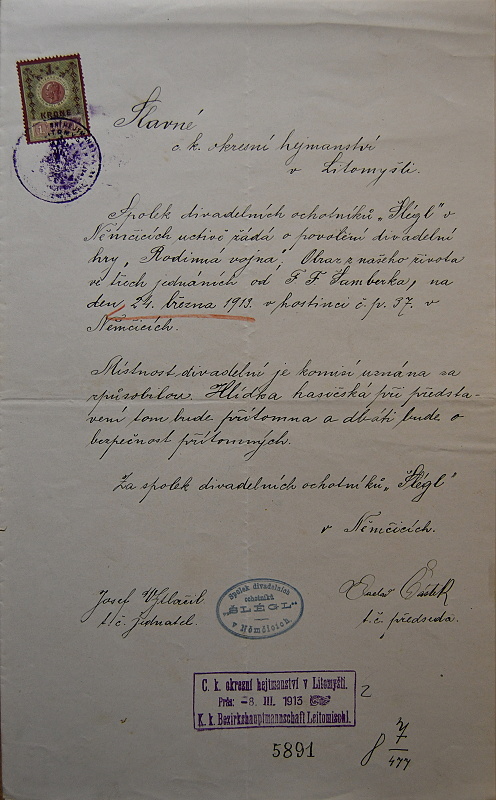 1
KRONE
Slavné
c. k. okresní hejmanství
v Litomyšli.
Spolek divadelních ochotníků „Šlégl" v
Němčicích uctivě žádá o povolení divadelní
hry „Rodinná vojna". Obraz z našeho života
ve třech jednáních od F. F. Šamberka, na
den 24. března 1913. v hostinci č. p. 37. v
Němčicích.
Místnost divadelní je komisí uznána za
způsobilou. Hlídka hasičská při předsta-
vení tom bude přítomna a dbáti bude o
bezpečnost přítomných.
Za spolek divadelních ochotníků „Šlégl"
v Němčicích.
Josef
t. č. jednatel.
Spolek divadelních
ochotníků
"ŠLÉGL"
v Němčicích.
t. č. předseda.
C. k. okresní hejtmanství v Litomyšli.
Präs: -8. III. 1913
K. k. Bezirkshauptmannschaft Leitomischl.
2
5891
8 7/477